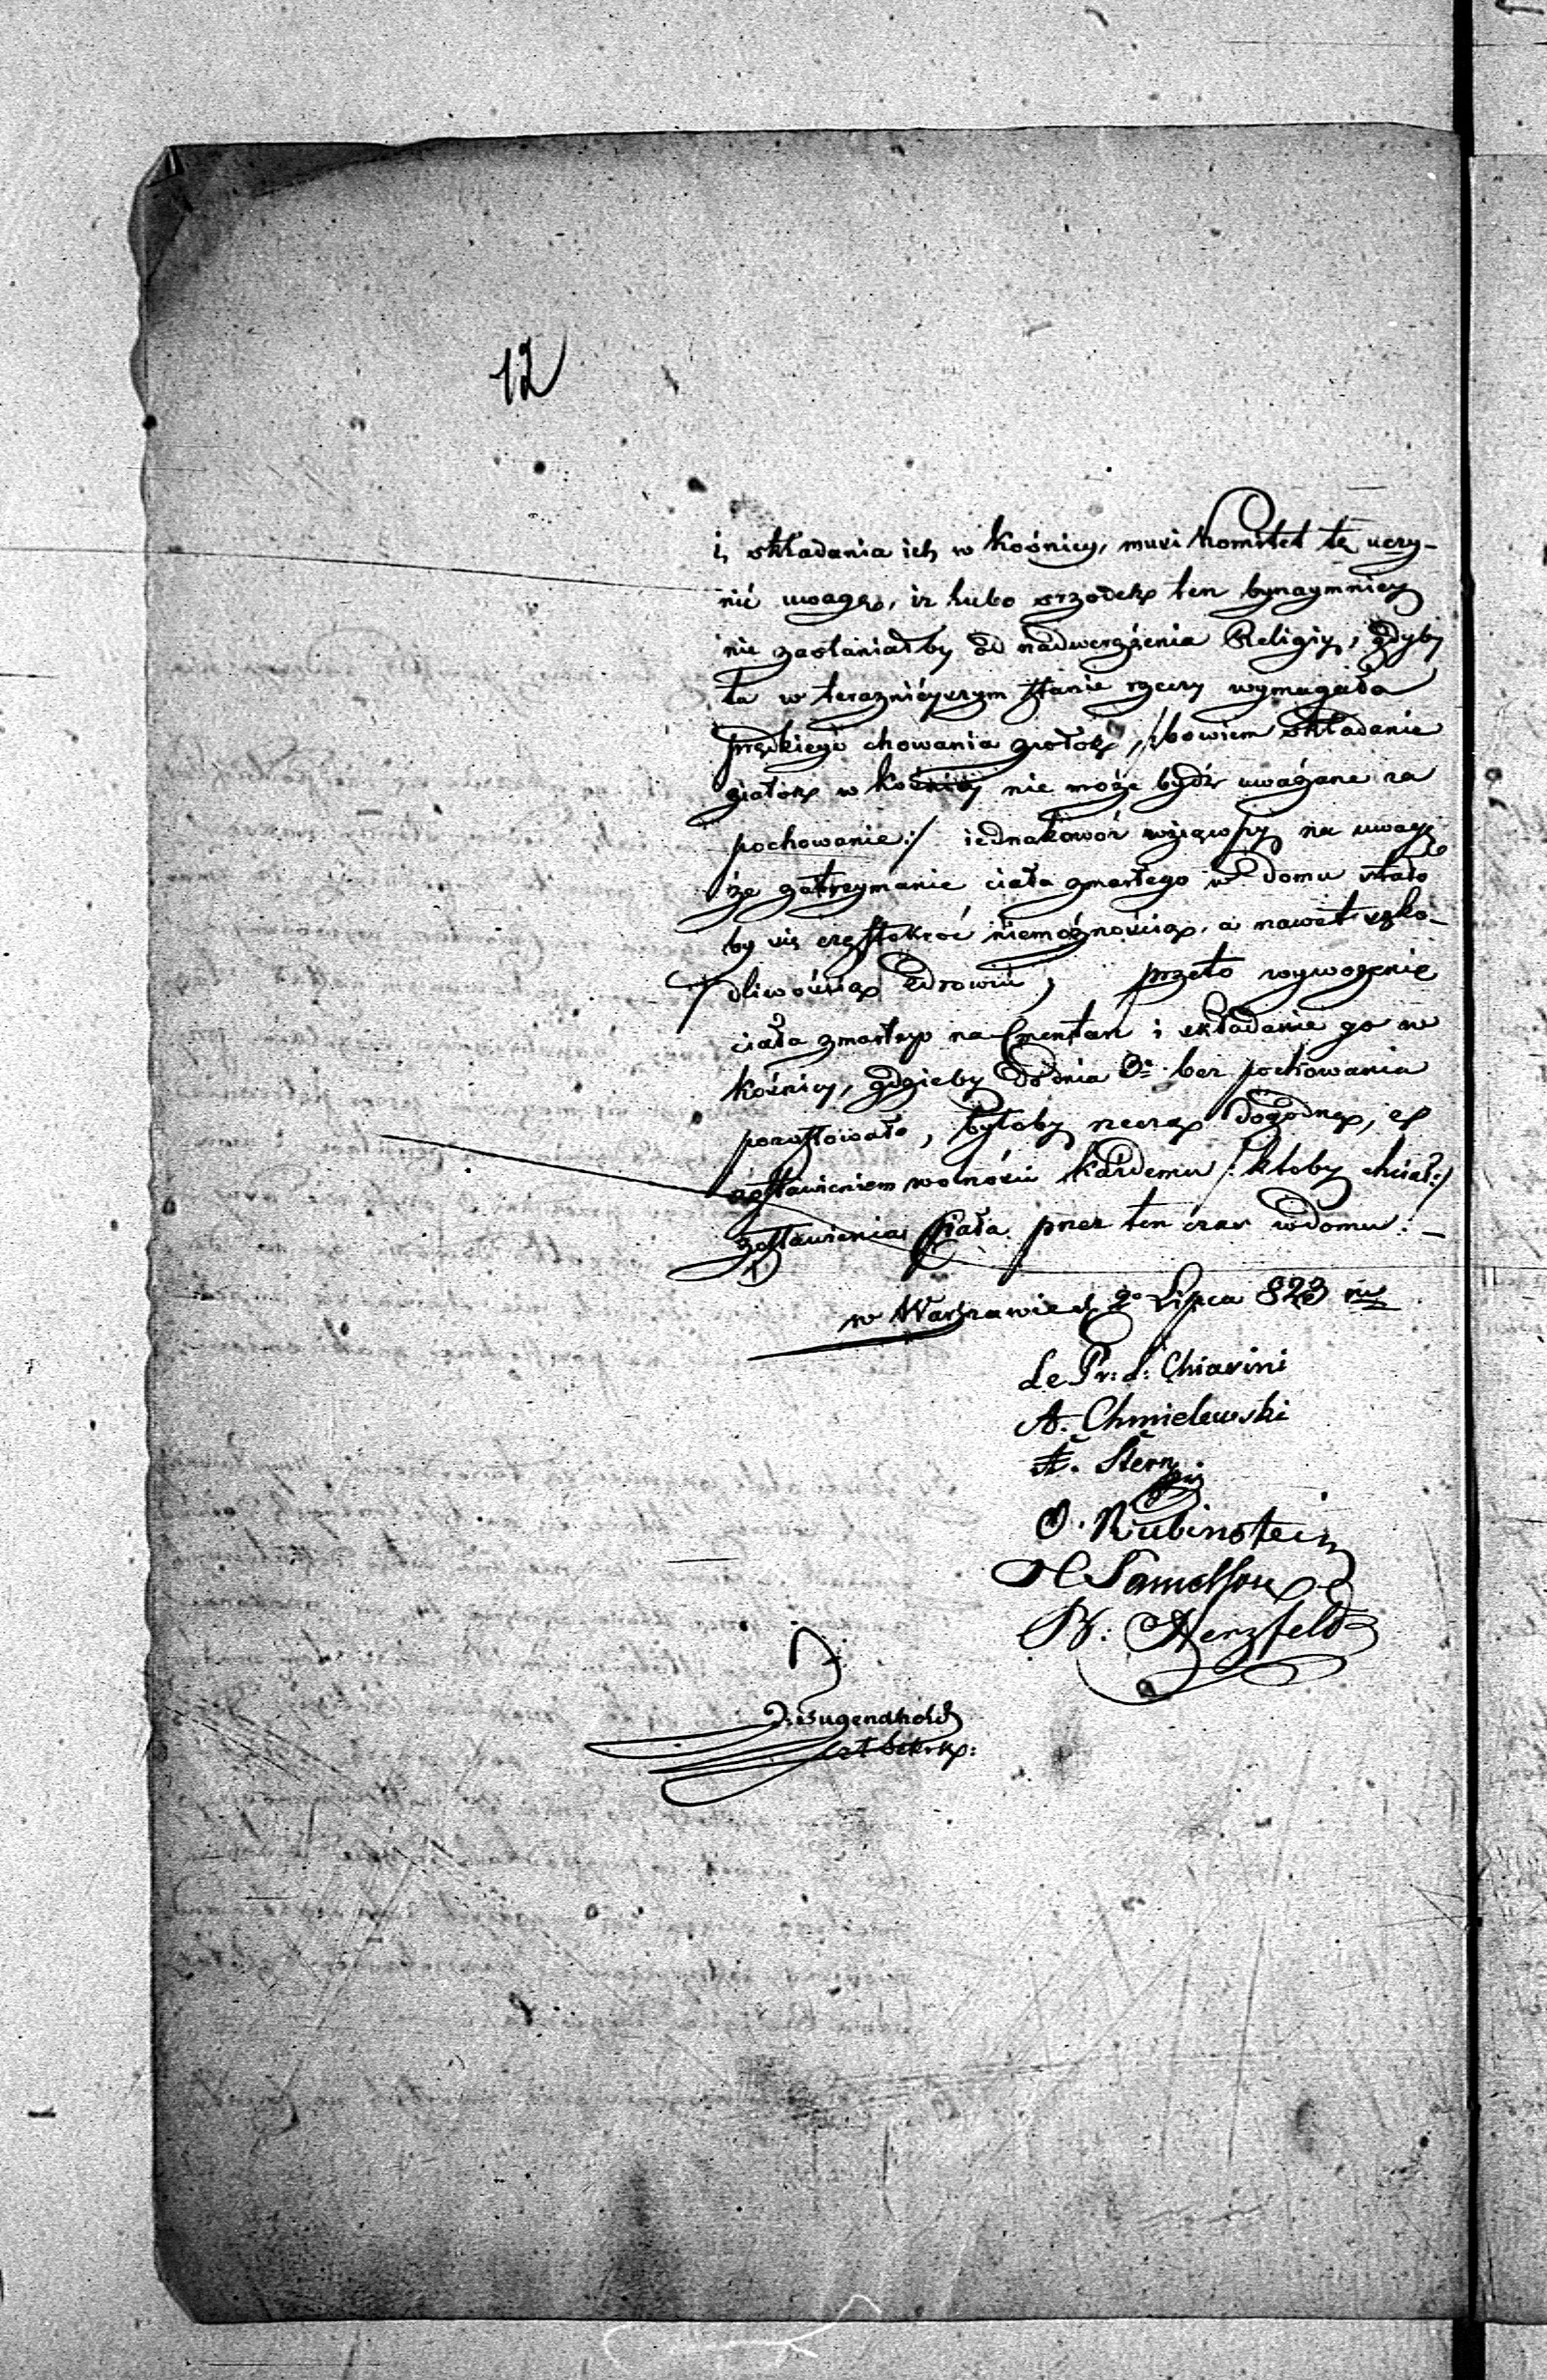 12
i składania ich w Kośnicy, musi Komitet tę uczy-
nić uwagę, iż lubo srzodek ten bynaymniey
nie zasłaniałby od nadwerężenia Religiy, gdyby
ta w teraznieyszym stanie rzeczy wymagała
prędkiego chowania zwłok, /:bowiem składanie
zwłok w Kośnicy nie może bydź uważane za
pochowanie:/ iednakowoż wziąwszy na uwagę
że zatrzymanie ciała zmarłego w domu stało
by się częstokroć niemożnością, a nawet szko-
dliwością zdrowiu, przeto wywożenie
ciała zmarłego na Cmentarz i składanie go w
Kośnicy, gdzieby do dnia 3º bez pochowania
pozostawało, byłoby rzeczą dogodną, z
zostawieniem wolności każdemu /:ktoby chciał:/
zostawienia Ciała przez ten czas w domu. –
w Warszawie d. 2º Lipca 823 r.
Le Pr: L: Chiarini
A. Chmielewski
A. Stern
O. Rubinstein
H Samelson
B: Herzfeld
J. Tugendhold